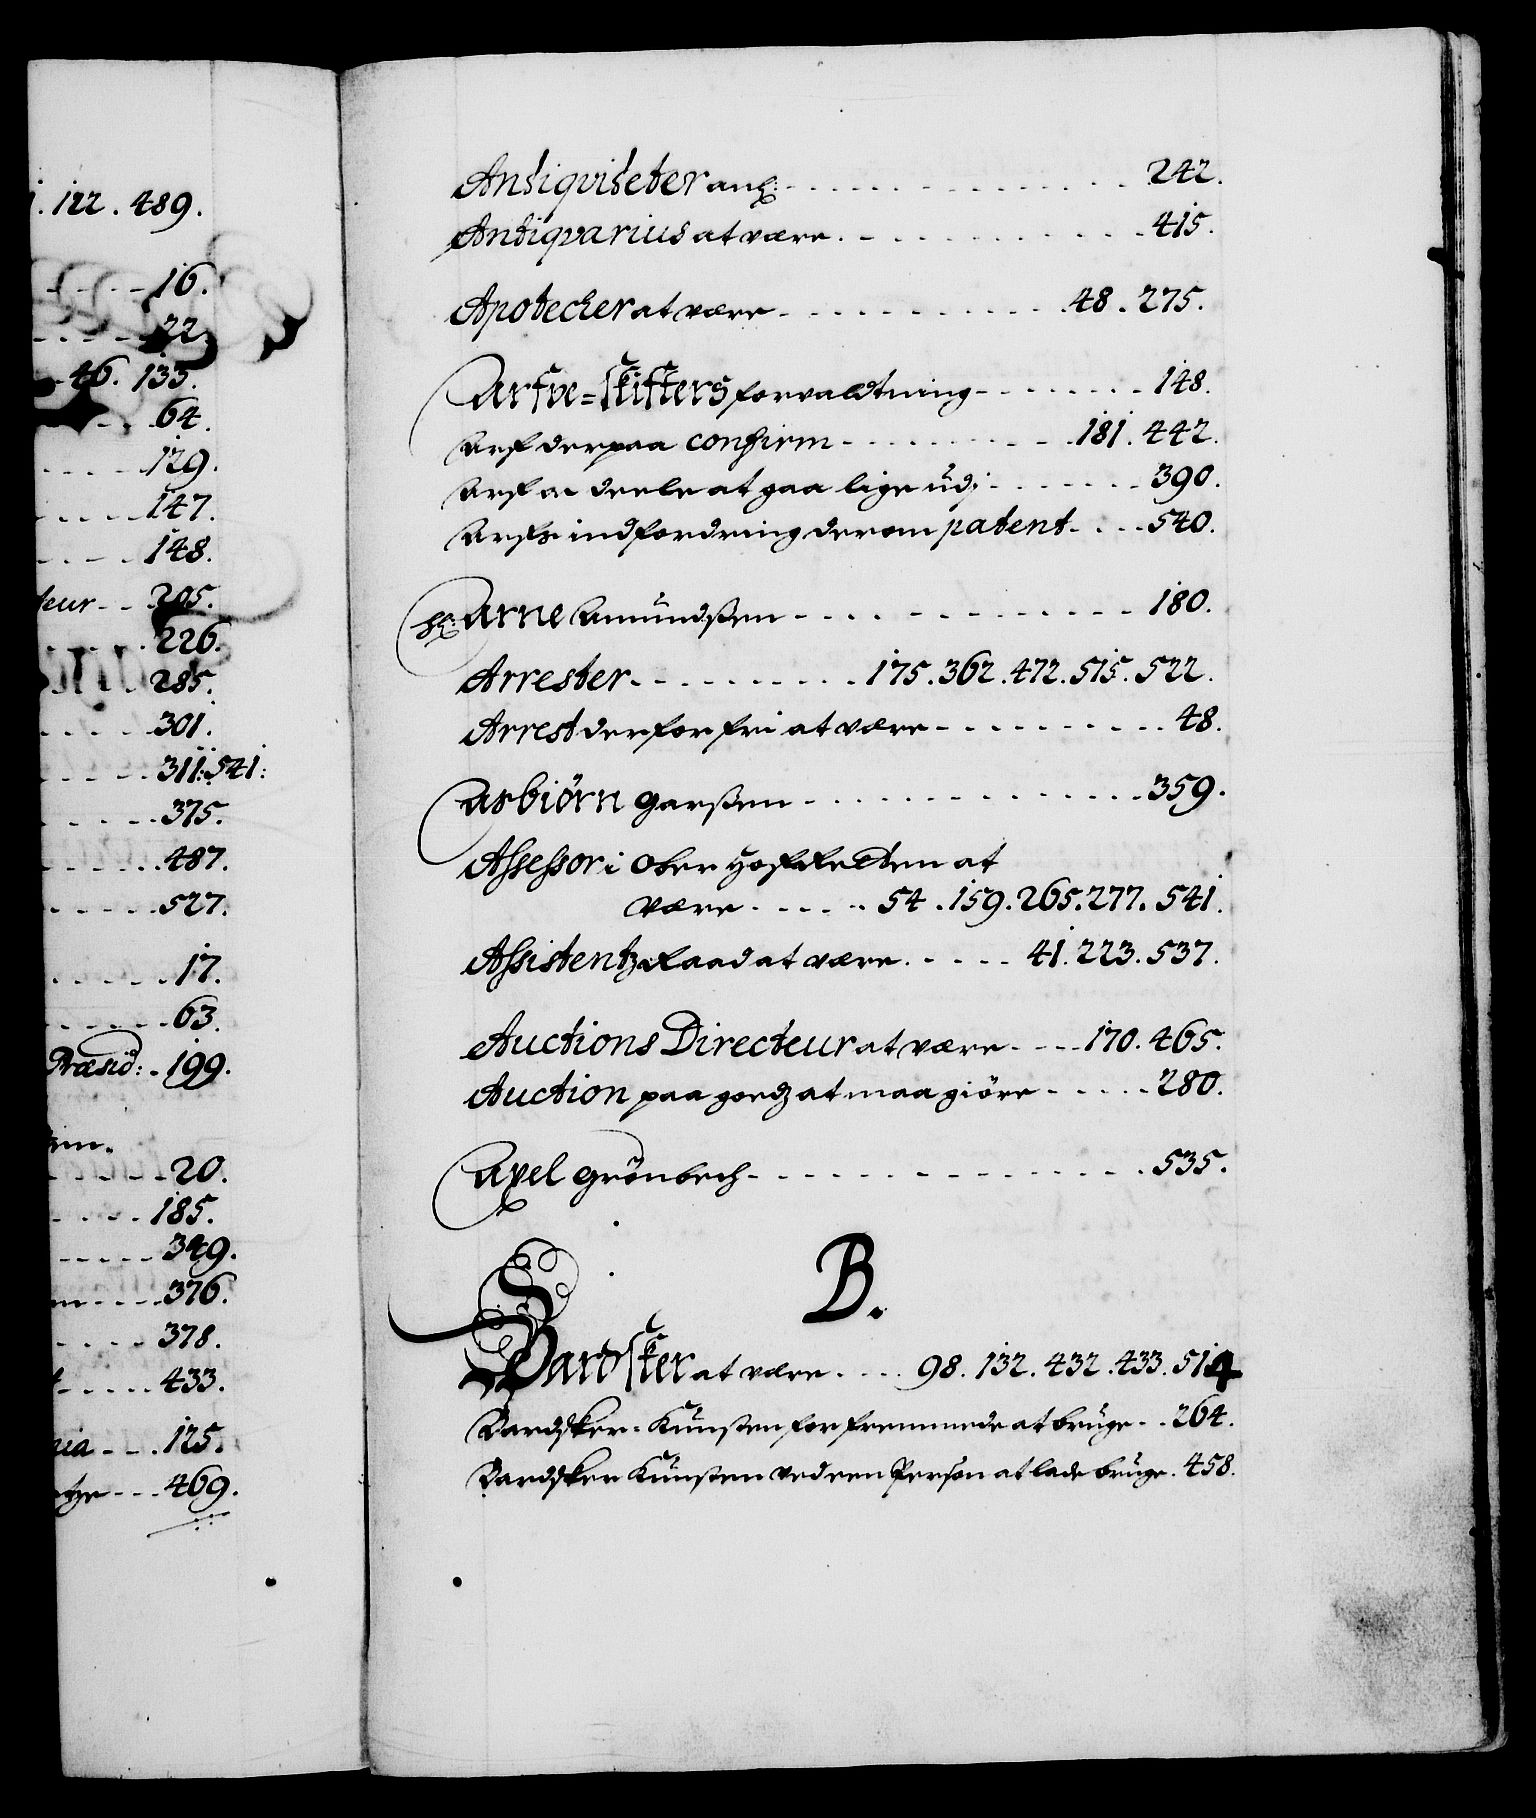 122. 489.
16.
22.
46. 133.
64.
129.
147.
148.
teur - - 205.
226.
285.
301.
311: 541:
375.
487.
527.
17.
63.
Præsid: - 199.
20.
185.
349.
376.
378.
433.
nia - - . 125.
469.
Antiqviteter anl: - - - - 242.
Antiqvarius at være. - - - - 415.
Apotecher at være - - - - 48. 275.
Arfve=skifters forvaldtning - - - - 148.
Arf derpaa confirm - - - - 181. 442.
Arf deele at gaa lige udj - - - - 390.
Arfs indfordring derom patent - - - - 540.
Arne Amundsen - - - - 180.
Arrester - - - - 175. 362. 472. 515. 522.
Arrest derfor fri at være - - - - 48.
Asbiørn Garsen - - - - 359.
Assessor i Ober Hof Retten at
være - - - - 54. 159. 265. 277. 541.
Assistentz Raad at være - - - - 41. 223. 537.
Auctions Directeur at være - - - - 170. 465.
Auction paa goedz at maa giöre - - - - 280.
Axel Grönbech - - - - 535.
B.
Bardsker at være - - - - 98. 132. 432. 433. 514
Bardsker-Kunsten for fremmede at bruge - - 264.
Bardsker Kunsten ved een Person at lade bruge. 458.